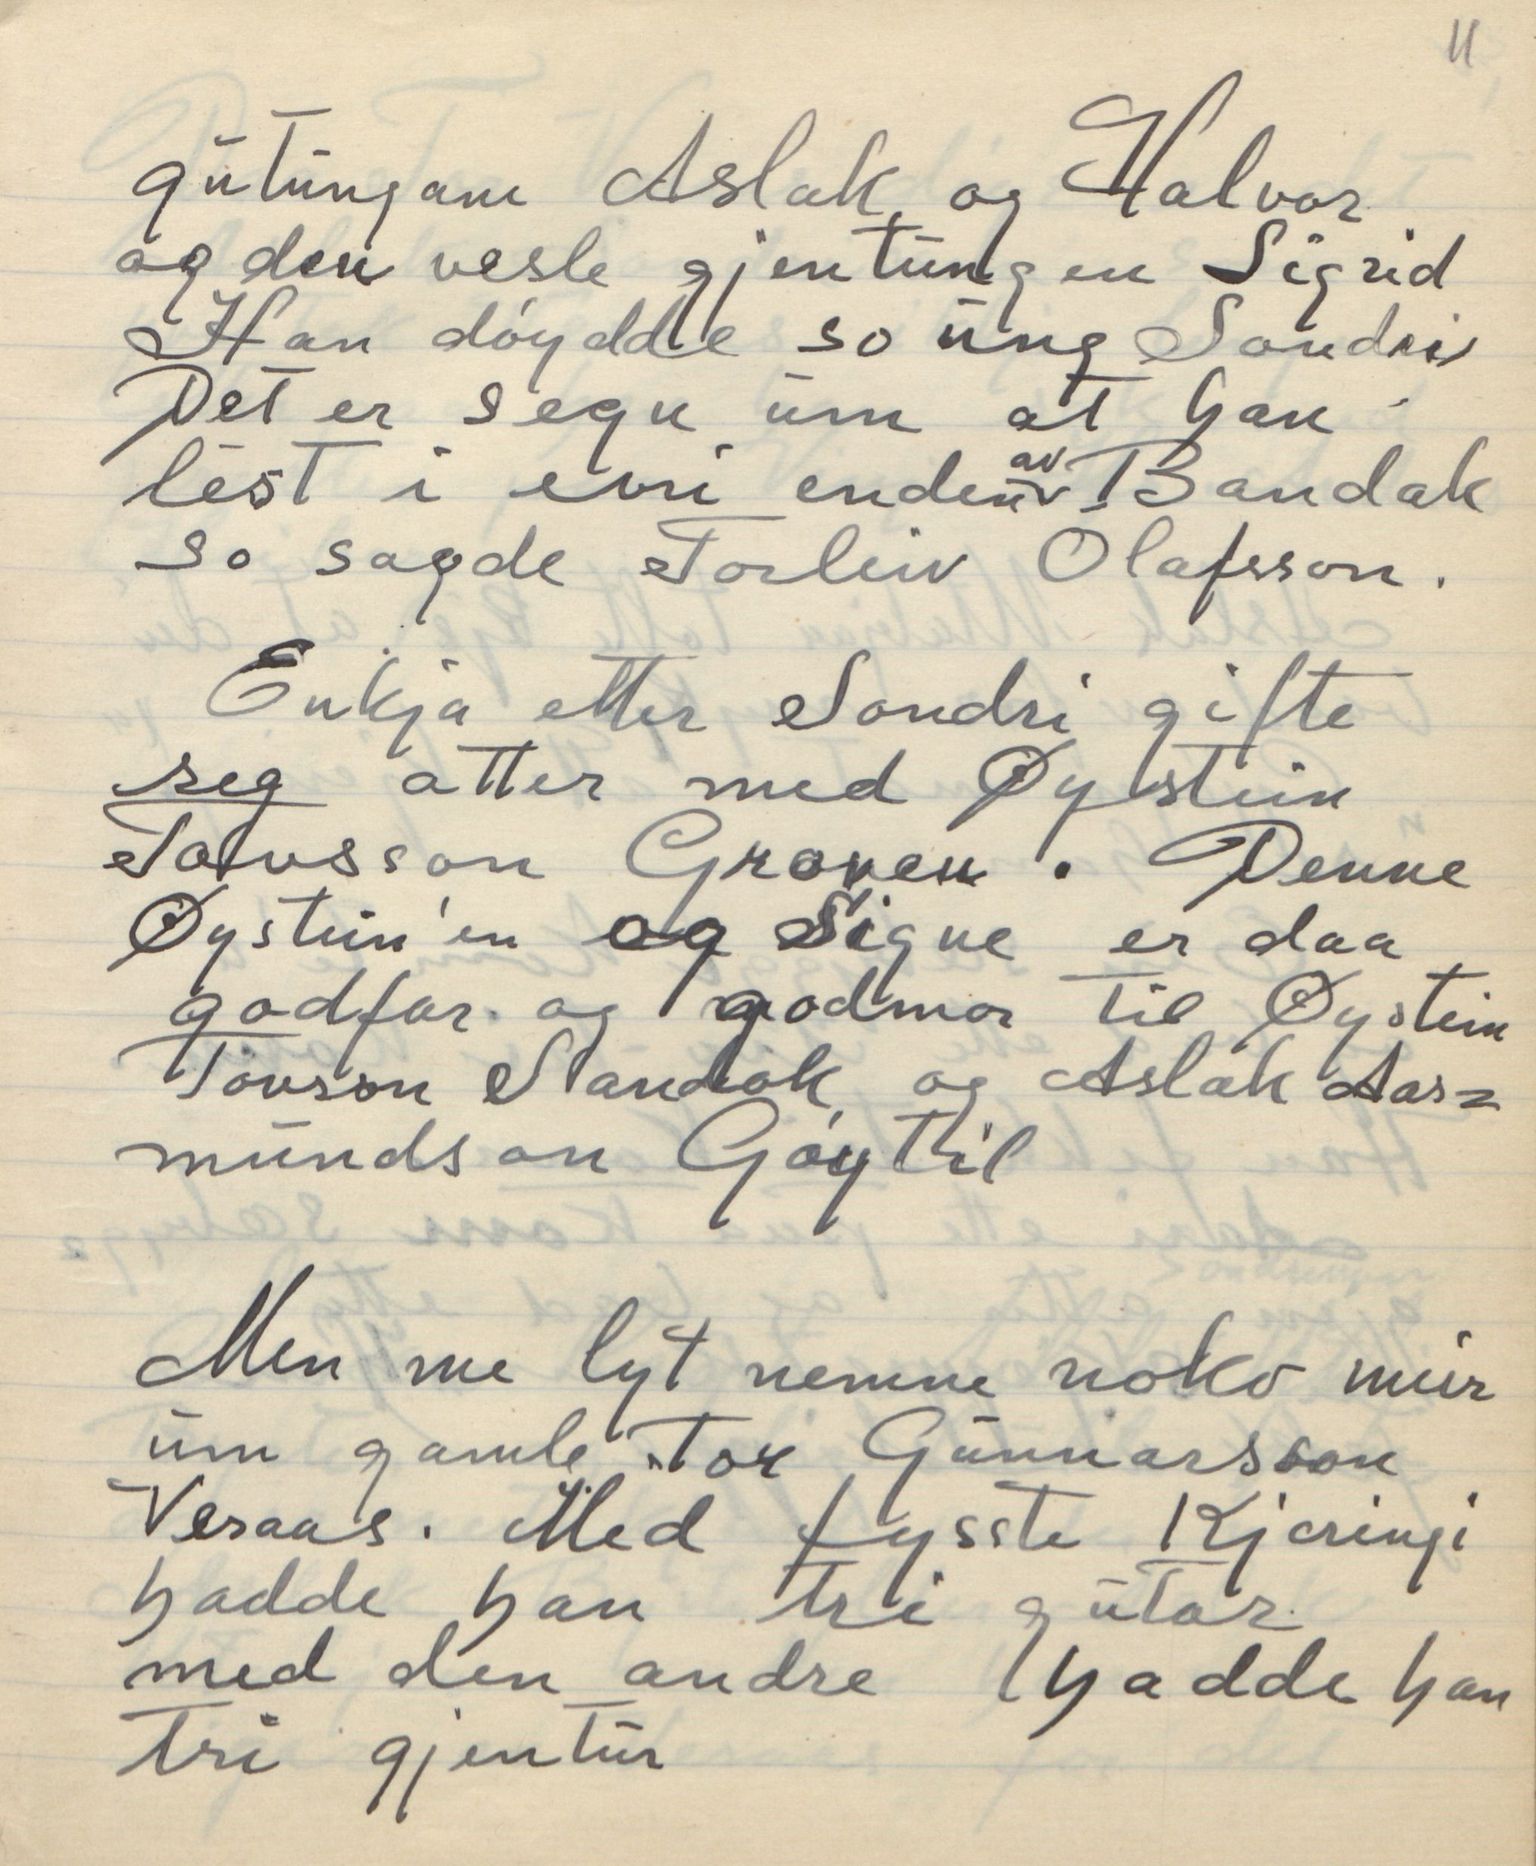 11
gutungane Aslak og Halvor
og den vesle gjentungen Sigrid
Han döydde so ung Sondri
Det er segn um at han
lest i evri enden av Bandak
so sagde Torleiv Olafsson.
Enkja etter Sondri gifte
seg atter med Øystein
Tovsson Groven. Denne
Øystein'en og Signe er daa
godfar og godmor til Øystein
Tovson Sandok og Aslak Aas=
mundson Göytil
Men me lyt nemne noko meir
um gamle Tor Gunnarsson
Veraas. Med fysste Kjeringi
hadde han tri gutar
med den andre hadde han
tri gjentur